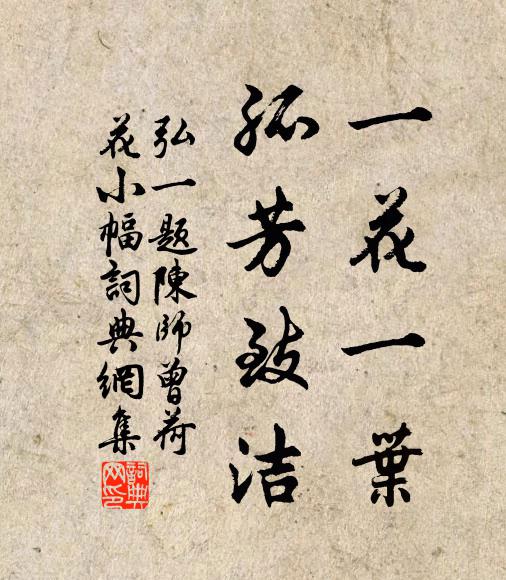 一花一葉
孤芳致洁
弘一題陳師曾荷
花小幅詞典網集
詞典
网印